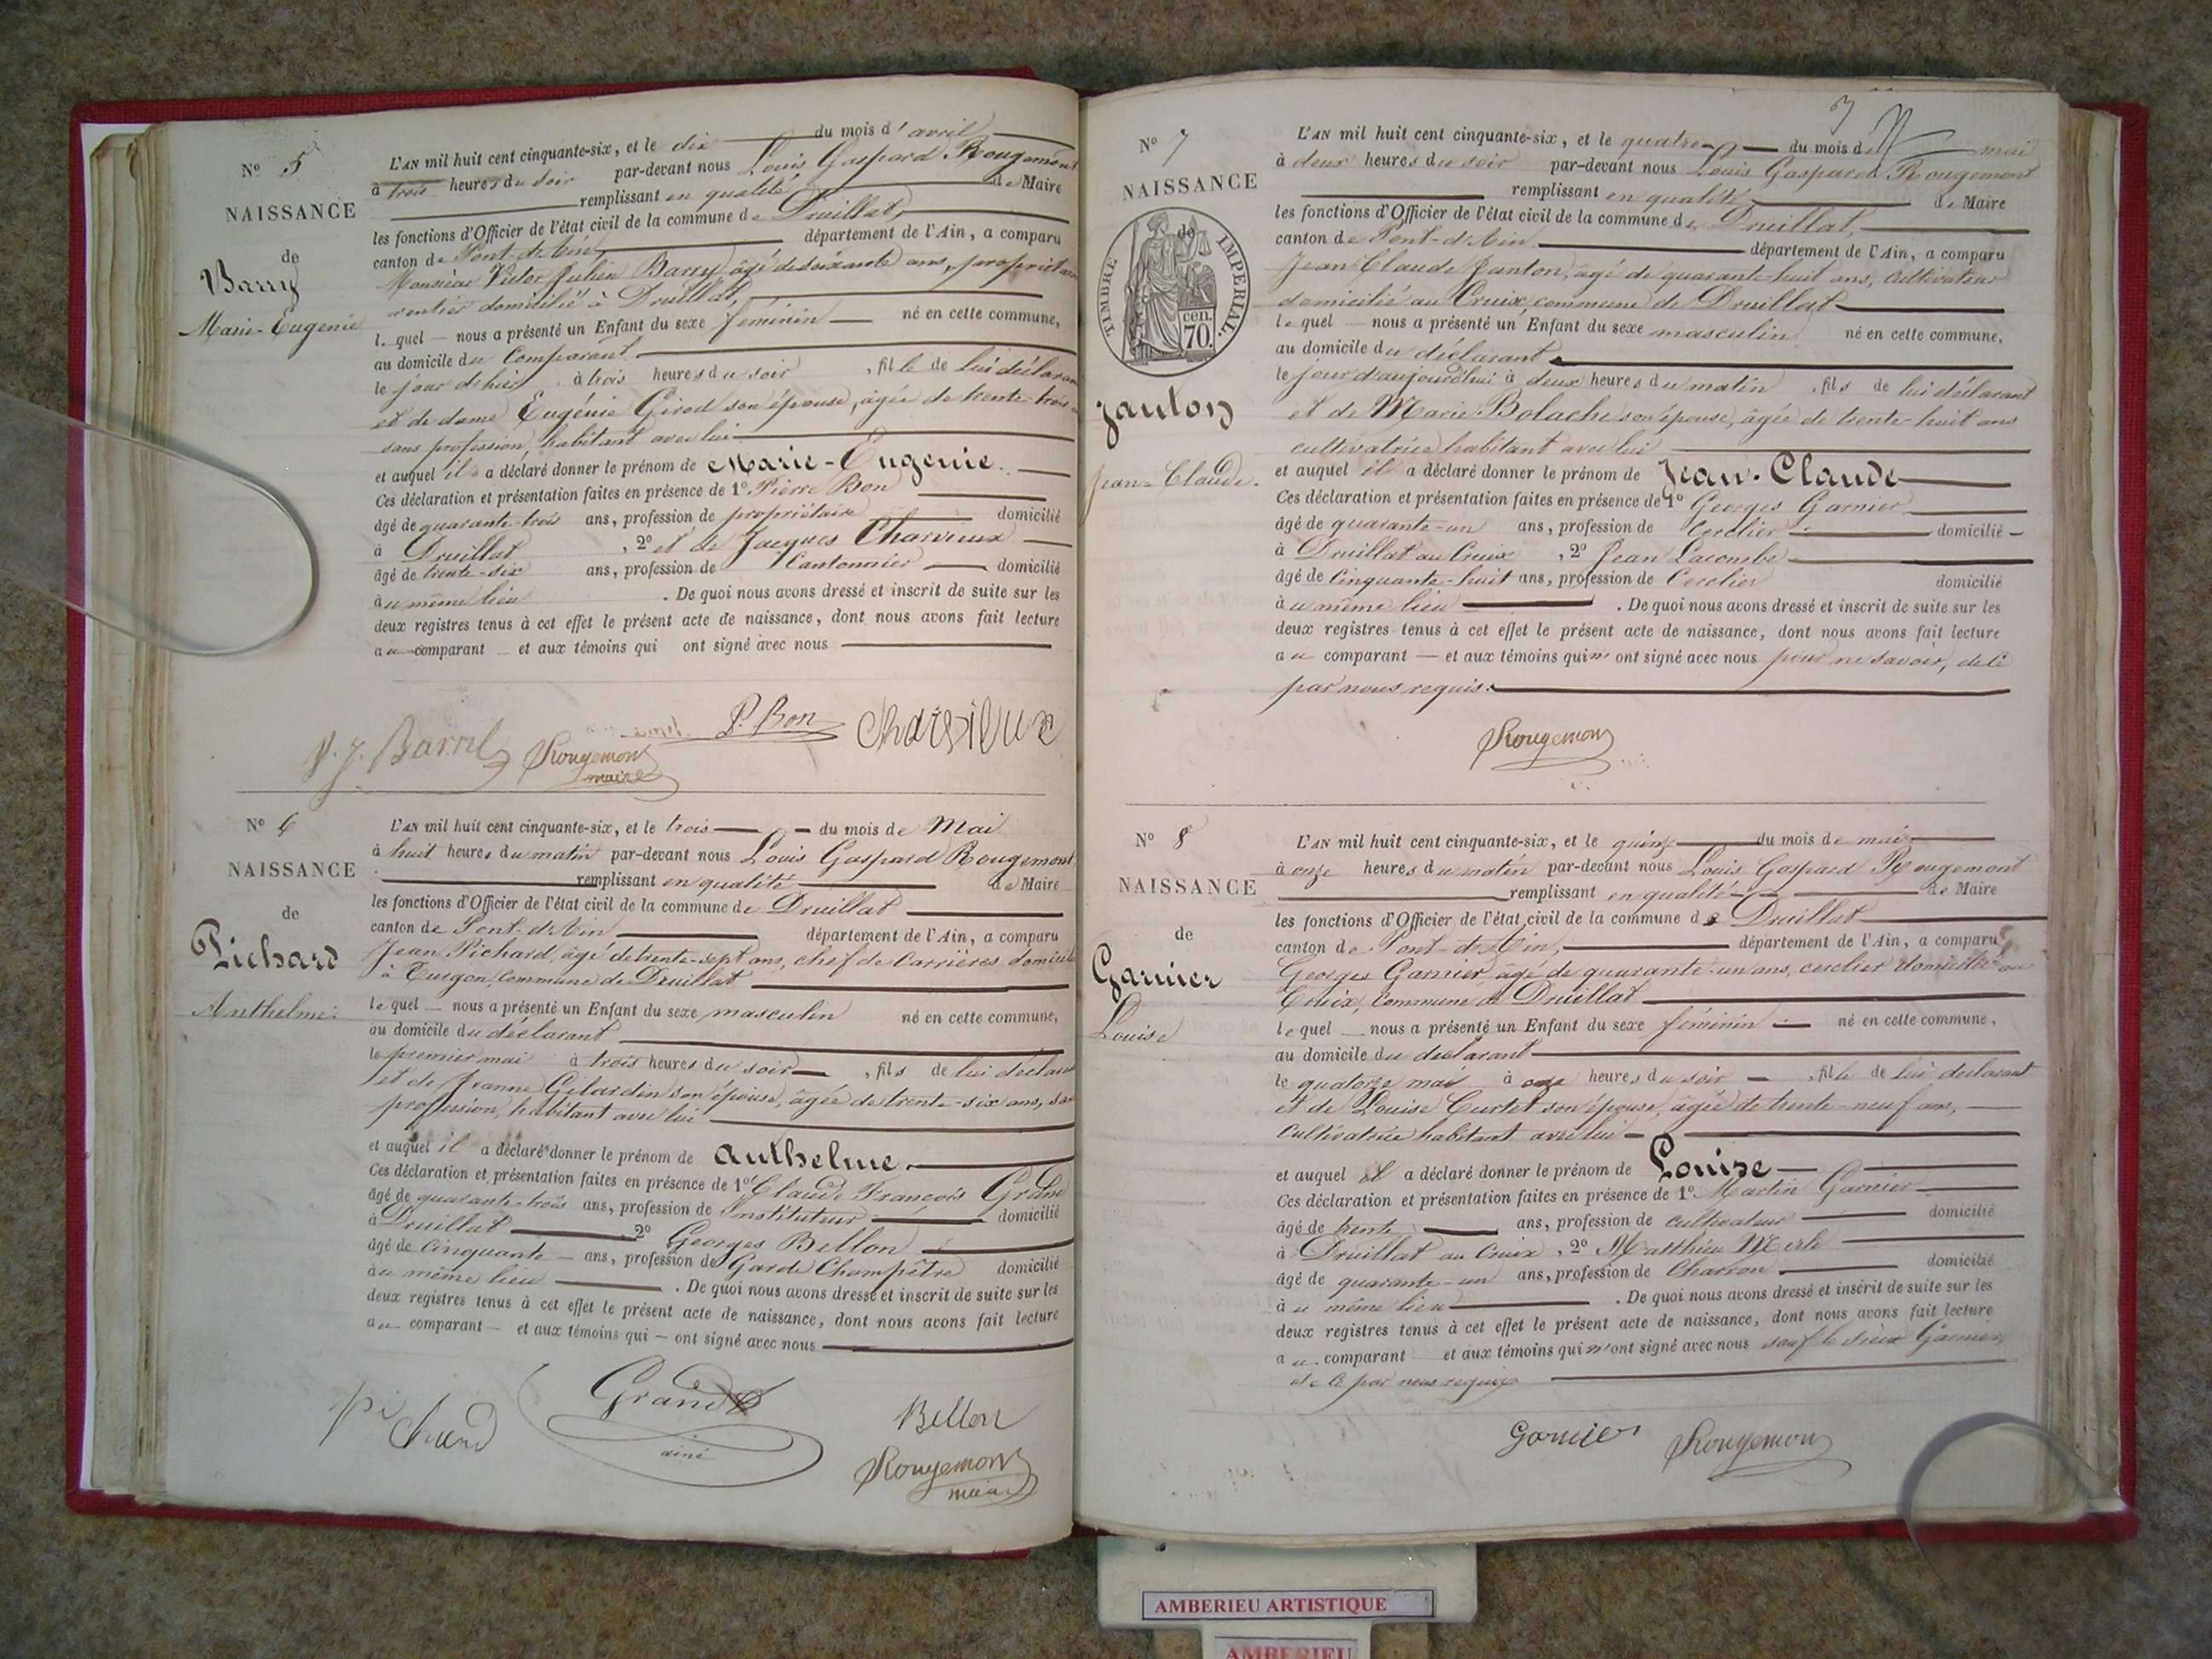 N° 5
NAISSANCE
de
Barry
Marie-Eugénie
L'AN mil huit cent cinquante-six, et le dix du mois d'avril
à trois heures du soir par-devant nous Louis Gaspard Rougemont
remplissant en qualité de Maire
les fonctions d'Officier de l'état civil de la commune de Druillat,
canton de Pont-d'Ain, département de l'Ain, a comparu
Monsieur Victor Julien Barry, âgé de soixante ans, propriétaire
rentier domicilié à Druillat,
lequel nous a présenté un Enfant du sexe féminin né en cette commune,
au domicile du Comparant.
le jour d'hier à trois heures du soir, fille de lui déclarant
et de dame Eugénie Girod son épouse, âgée de trente-trois
sans profession, habitant avec lui
et auquel il a déclaré donner le prénom de Marie-Eugénie.
Ces déclaration et présentation faites en présence de 1° Pierre Bon
âgé de quarante-trois ans, profession de propriétaire domicilié
à Druillat, 2° et de Jacques Charvieux
âgé de trente-six ans, profession de Cantonnier domicilié
au même lieu. De quoi nous avons dressé et inscrit de suite sur les
deux registres tenus à cet effet le présent acte de naissance, dont nous avons fait lecture
au comparant et aux témoins qui ont signé avec nous
P. Bon Charvieux
Rougemont
maire
N° 6
NAISSANCE
de
Pichard
Anthelme.
L'AN mil huit cent cinquante-six, et le trois du mois de Mai
à huit heures du matin par-devant nous Louis Gaspard Rougemont
remplissant en qualité de Maire
les fonctions d'Officier de l'état civil de la commune de Druillat
canton de Pont-d'Ain département de l'Ain, a comparu
Jean Pichard, âgé de trente-sept ans, chef de Carrières domicilié
à Turgon, Commune de Druillat
lequel nous a présenté un Enfant du sexe masculin né en cette commune,
au domicile du déclarant
le premier mai à trois heures du soir, fils de lui déclarant
et de Jeanne Gilardin son épouse, âgée de trente-six ans, sans
profession, habitant avec lui
et auquel il a déclaré donner le prénom de Anthelme.
Ces déclaration et présentation faites en présence de 1° Claude François Grand
âgé de quarante-trois ans, profession de Instituteur domicilié
à Druillat 2° Georges Bellon
âgé de cinquante ans, profession de Garde Champêtre domicilié
au même lieu. De quoi nous avons dressé et inscrit de suite sur les
deux registres tenus à cet effet le présent acte de naissance, dont nous avons fait lecture
au comparant et aux témoins qui ont signé avec nous
pichard Grand Bellon
ainé
Rougemont
maire
N° 7
NAISSANCE
de
TIMBRE IMPERIAL
cen.
70.
Janton
Jean-Claude.
L'AN mil huit cent cinquante-six, et le quatre du mois de mai
à deux heures du soir par-devant nous Louis Gaspard Rougemont
remplissant en qualité de Maire
les fonctions d'Officier de l'état civil de la commune de Druillat,
canton de Pont-d'Ain. département de l'Ain, a comparu
Jean Claude Janton, âgé de quarante-huit ans, cultivateur
domicilié au Cruix, commune de Druillat
lequel nous a présenté un Enfant du sexe masculin né en cette commune,
au domicile du déclarant
le jour d'aujourd'hui à deux heures du matin, fils de lui déclarant
et de Marie Bolache son épouse, âgée de trente-huit ans
cultivatrice habitant avec lui
et auquel il a déclaré donner le prénom de Jean-Claude
Ces déclaration et présentation faites en présence de 1° Georges Garnier
âgé de quarante-un ans, profession de Cerclier domicilié
à Druillat au Cruix, 2° Jean Lacombe
âgé de Cinquante-huit ans, profession de Cerclier domicilié
au même lieu. De quoi nous avons dressé et inscrit de suite sur les
deux registres tenus à cet effet le présent acte de naissance, dont nous avons fait lecture
au comparant et aux témoins qui n'ont signé avec nous pour ne savoir, de ce
par nous requis.
Rougemont
N° 8
NAISSANCE
de
Garnier
Louise
L'AN mil huit cent cinquante-six, et le quinze du mois de mai
à onze heures du matin par-devant nous Louis Gaspard Rougemont
remplissant en qualité de Maire
les fonctions d'Officier de l'état civil de la commune de Druillat
canton de Pont-d'Ain, département de l'Ain, a comparu
Georges Garnier, âgé de quarante-un ans, cerclier domicilié au
Cruix, Commune de Druillat
lequel nous a présenté un Enfant du sexe féminin né en cette commune,
au domicile du déclarant
le quatorze mai à onze heures du soir, fille de lui déclarant
et de Louise Curtet son épouse, âgée de trente-neuf ans,
cultivatrice habitant avec lui
et auquel il a déclaré donner le prénom de Louise
Ces déclaration et présentation faites en présence de 1° Martin Garnier
âgé de trente ans, profession de cultivateur domicilié
à Druillat au Cruix, 2° Matthieu Merle
âgé de quarante-un ans, profession de Charron domicilié
au même lieu. De quoi nous avons dressé et inscrit de suite sur les
deux registres tenus à cet effet le présent acte de naissance, dont nous avons fait lecture
au comparant et aux témoins qui n'ont signé avec nous sauf le sieur Garnier,
de ce par nous requis
Garnier Rougemont
AMBERIEU ARTISTIQUE
AMBERIEU